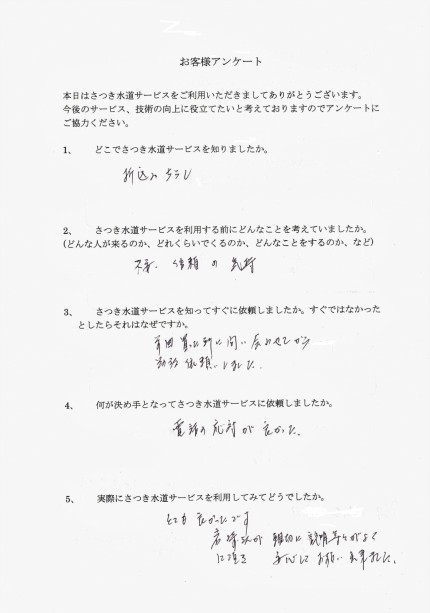 お客様アンケート
本日はさつき水道サービスをご利用いただきましてありがとうございます。
今後のサービス、技術の向上に役立てたいと考えておりますのでアンケートに
ご協力ください。
1、 どこでさつき水道サービスを知りましたか。
折込みチラシ
2、 さつき水道サービスを利用する前にどんなことを考えていましたか。
(どんな人が来るのか、どれくらいでくるのか、どんなことをするのか、など)
不安、信頼の気持
3、 さつき水道サービスを知ってすぐに依頼しましたか。すぐではなかった
としたらそれはなぜですか。
問い合わせてから
依頼しました。
4、 何が決め手となってさつき水道サービスに依頼しましたか。
電話の応対が良かった。
5、 実際にさつき水道サービスを利用してみてどうでしたか。
とても良かったです
さんが 親切に 説明
お願い 出来ました。